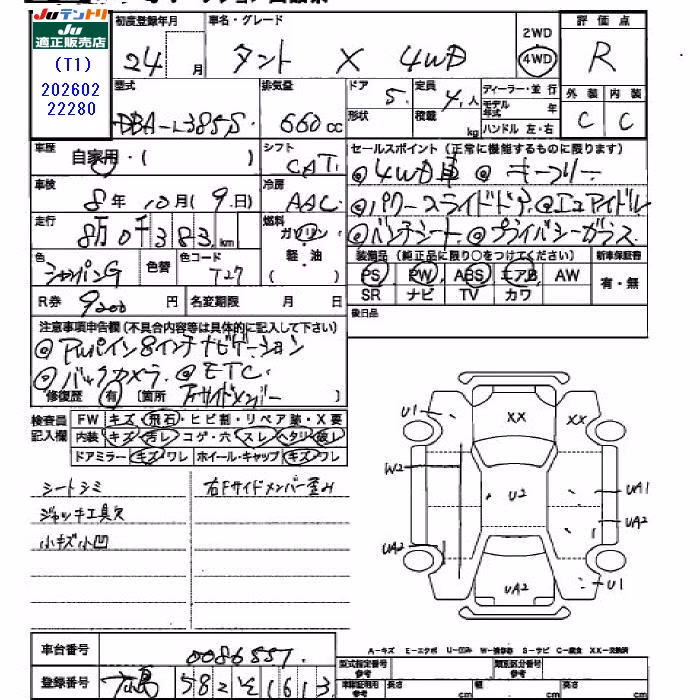 JUテントリ
JU
適正販売店
(T1)
202602
22280
初度登録年月
24 月
車名・グレード
タント X 4WD
2WD
4WD
評価点
R
外装 内装
C C
型式
DBA-L385S
排気量
660 cc
ドア
5
形状
定員
4人
積載
kg
ディーラー・並行
モデル年式 年
ハンドル 左・右
車歴
自家用・( )
シフト
CAT
セールスポイント(正常に機能するものに限ります)
◎4WD車 ◎キーフリー
◎パワースライドドア ◎エコアイドル
◎ベンチシート ◎プライバシーガラス
車検
8年10月(9日)
冷房
AAC
走行
8万0千383km
燃料
ガソリン
軽・油
( )
色
シャンパンG
色替
色コード
T27
装備品(純正品に限り○をつけてください)
PS PW ABS エアB AW
SR ナビ TV カワ
新車保証書
有・無
R券 9200 円
名変期限 月 日
後日品
注意事項申告欄(不具合内容等は具体的に記入して下さい)
◎アルパイン8インチナビゲーション
◎バックカメラ ◎ETC
修復歴 有 [箇所 Fサイドメンバー ]
検査員記入欄
FW キズ・飛石・ヒビ割・リペア跡・X要
内装 キズ・汚レ・コゲ・穴・スレ・ヘタリ・破レ
ドアミラー キズ・ワレ ホイール・キャップ キズ・ワレ
シートシミ
ジャッキ工具欠
小キズ小凹
右Fサイドメンバー歪み
U1
XX
XX
W2
U2
UA1
UA2
UA2
UA2
U1
車台番号
0086557
登録番号
広島 582 を 1613
A-キズ E-エクボ U-凹み W-補修跡 S-サビ C-腐食 XX-交換済
型式指定番号
類別区分番号
車検証明用参考
長さ cm
幅 cm
高さ cm